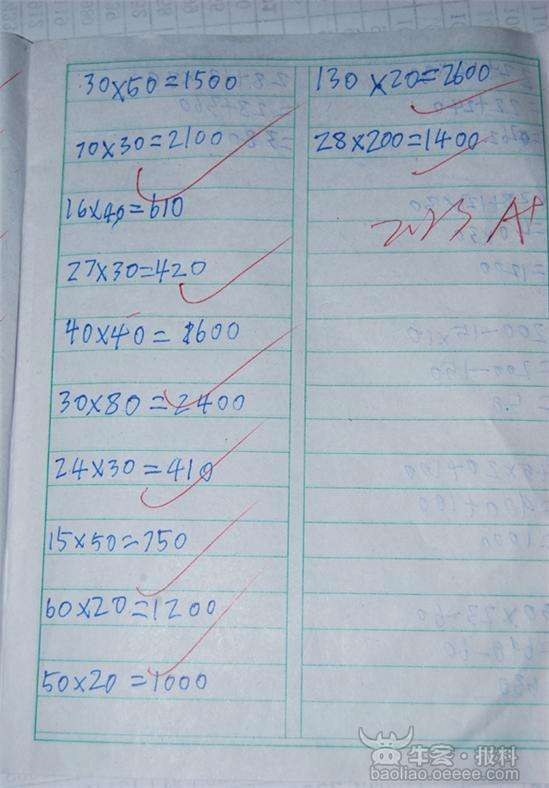 30×50=1500
70×30=2100
16×40=610
27×30=420
40×40=1600
30×80=2400
24×30=410
15×50=750
60×20=1200
50×20=1000
130×20=2600
28×200=1400
A+
牛客·报料
baoliao.oeeee.com